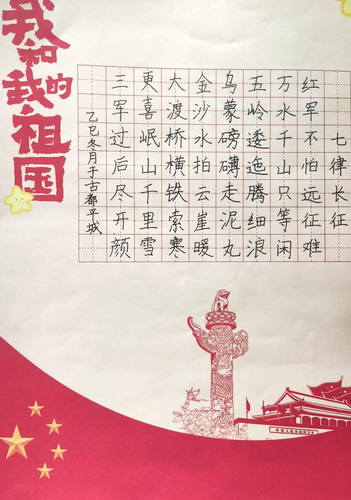 我和我的祖国
七律长征
红军不怕远征难
万水千山只等闲
五岭逶迤腾细浪
乌蒙磅礴走泥丸
金沙水拍云崖暖
大渡桥横铁索寒
更喜岷山千里雪
三军过后尽开颜
乙巳冬月于古都平城